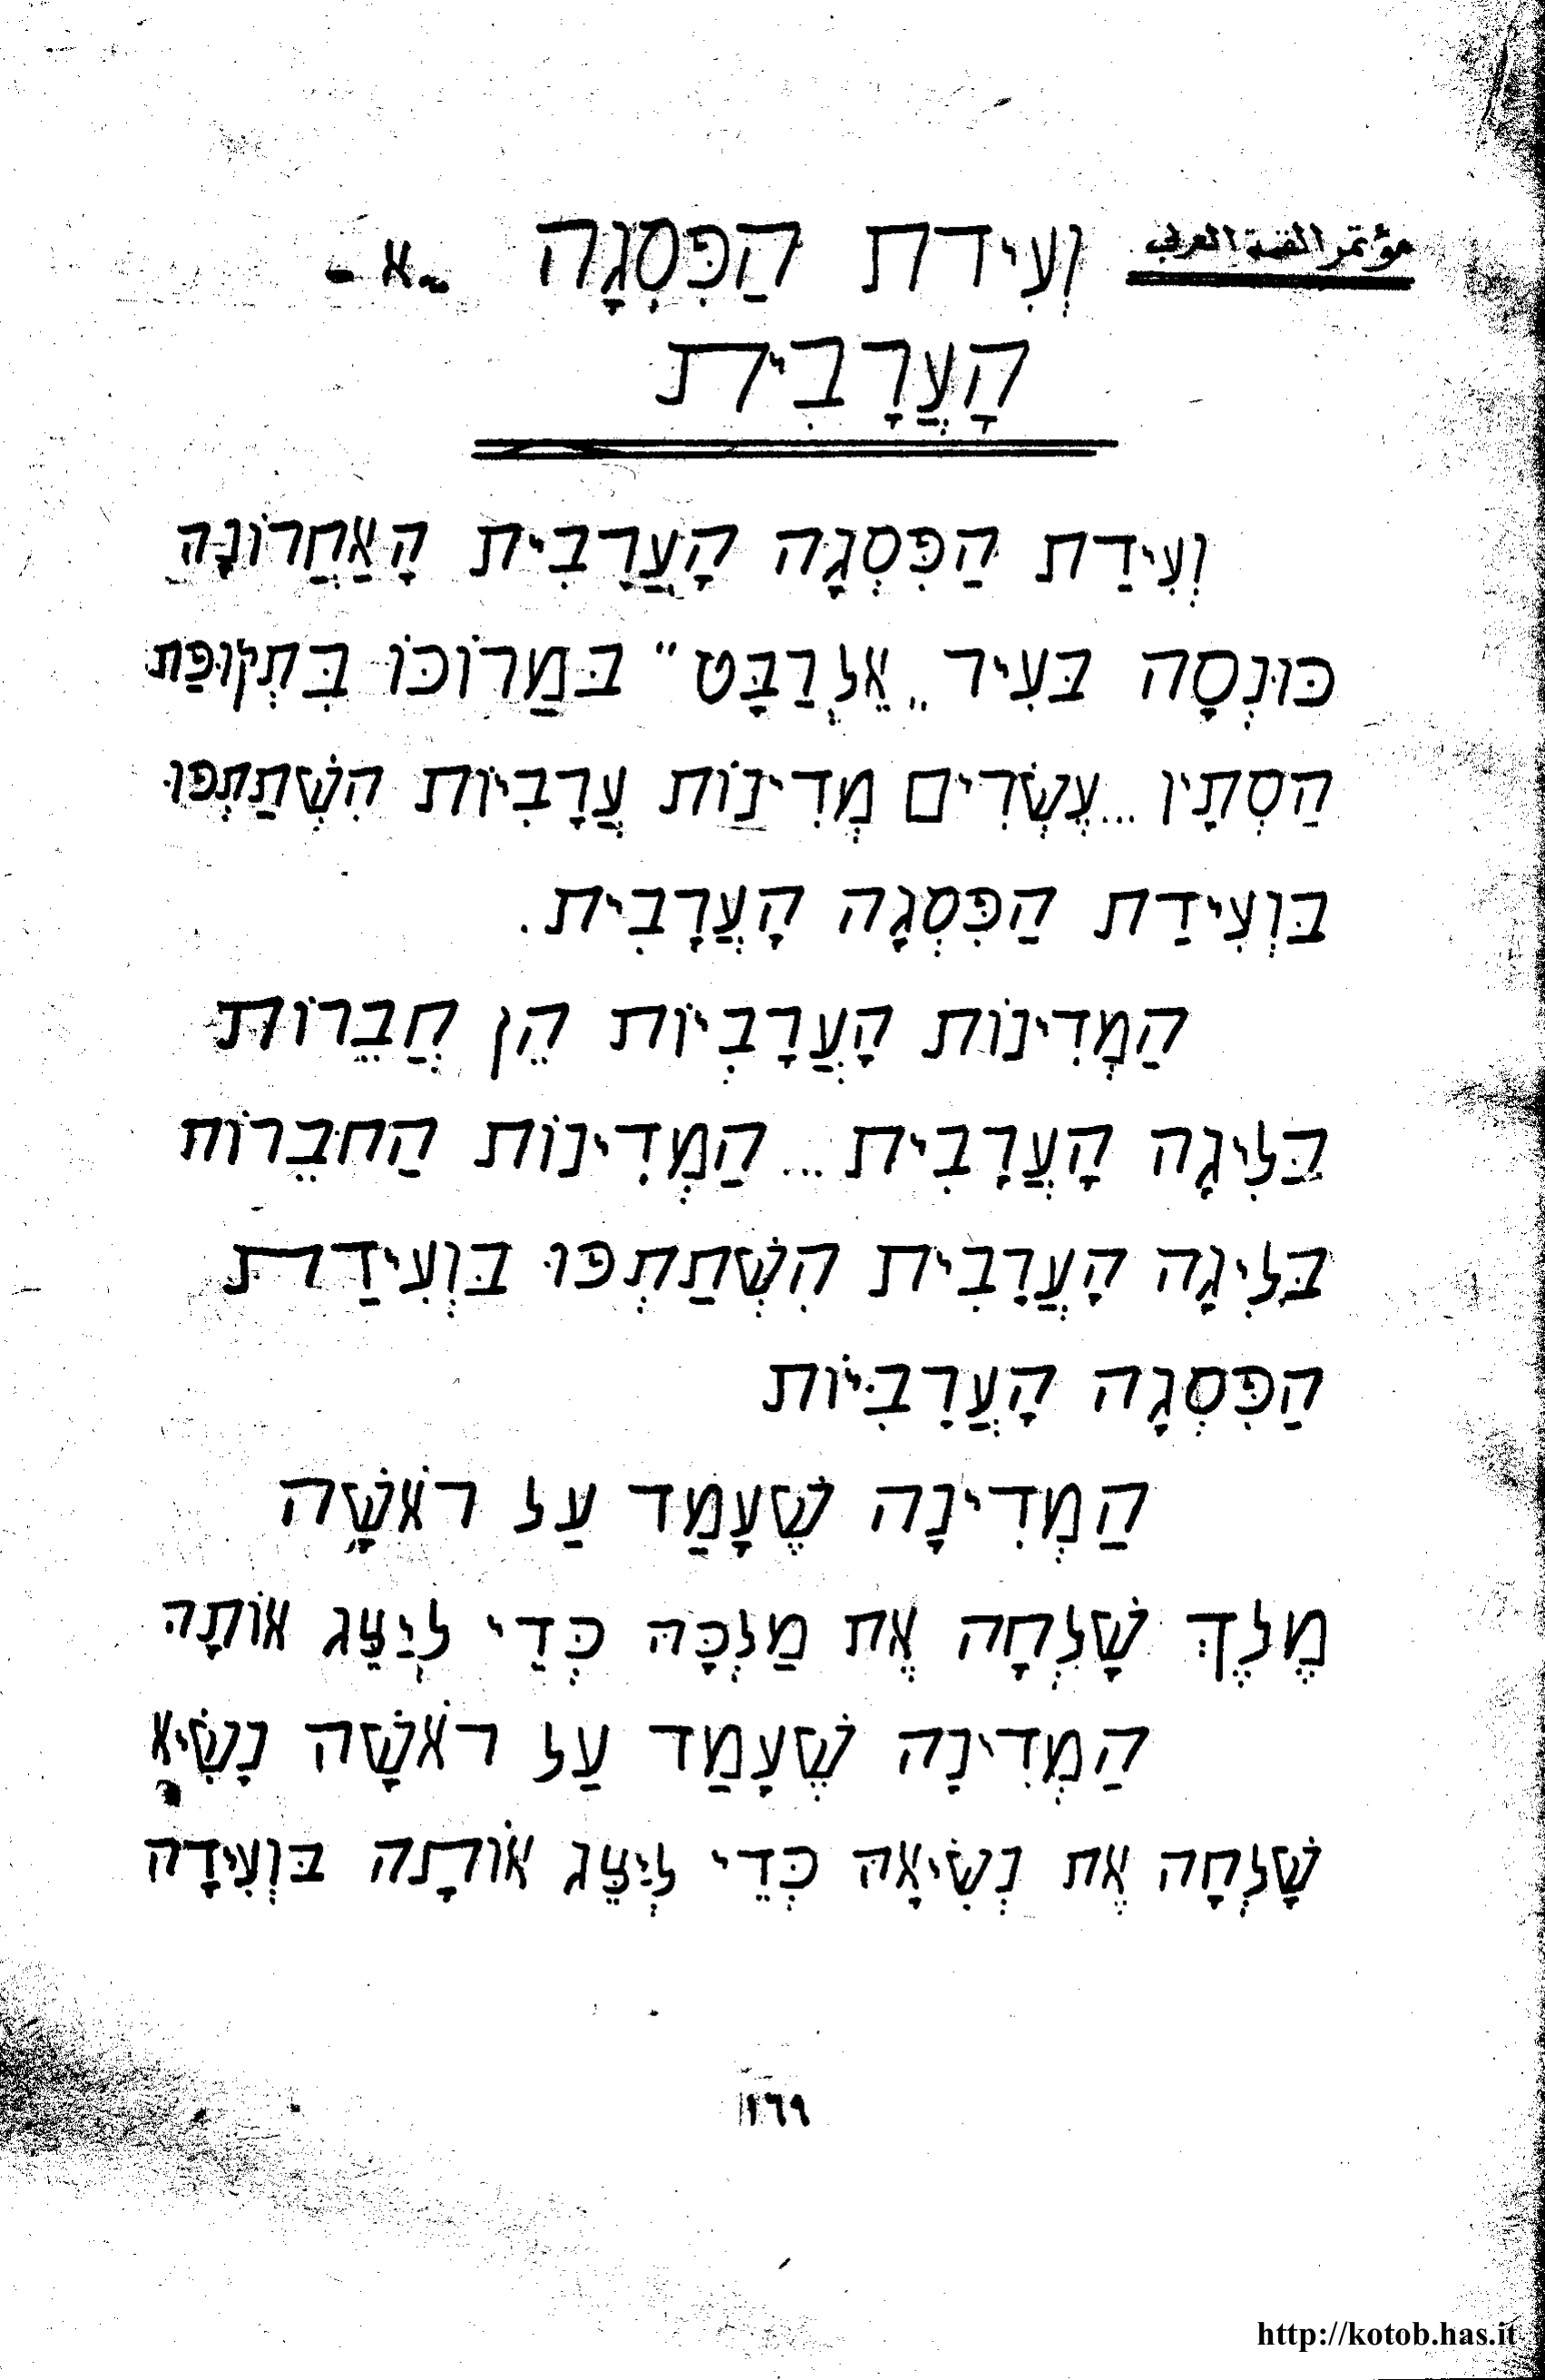 مؤتمر القمة العربى וְעִידת הַפִּסְגָה -א-
הָעֲרָבִית
וְעִידַת הַפִּסְגָה הָעֲרָבִית הָאַחֲרוֹנָה
כּוּנְסָה בּעִיר „אֵלְרַבָּט" בּמַרוֹכּוֹ בִּתְקוּפַת
הַסְתָיו ...עֶשְׂרִים מְדִינוֹת עֲרָבִיוֹת הִשְׁתַתְפוּ
בּוְעִידַת הַפִּסְגָה הָעֲרָבִית.
הַמְדִינוֹת הָעֲרָבְיוֹת הֵן חֲבֵרוֹת
בַּלִיגָה הָעֲרָבִית ... הַמְדִינוֹת הַחֹבֵרוֹת
בַּלִיגָה הָעֲרָבִית הִשְׁתַתְפוּ בּוְעִידַת
הַפִּסְגָה הָעֲרָבִיּוֹת
הַמְדִינָה שֶׁעָמַד עַל רֹאשָׁה
מֶלֶךְ שָׁלְחָה אֶת מַלְכָּהּ כְּדֵי לְיַצֵג אוֹתָהּ
הַמְדִינָה שֶׁעָמַד עַל רֹאשָׁה נָשִׂיא
שָׁלְחָה אֶת נְשִׂיאָהּ כְּדֵי לְיַצֵג אוֹתָה בּוְעִידָה
١٦٩
http://kotob.has.it